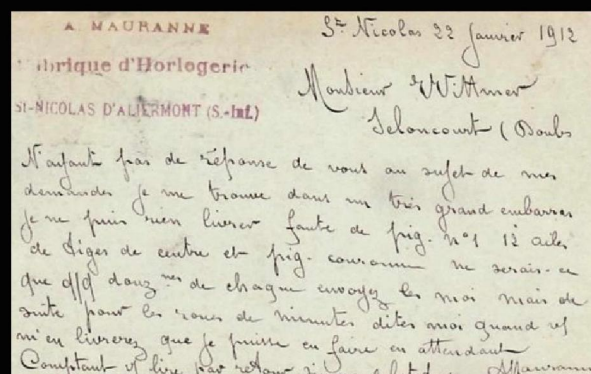 A MAURANNE
brique d'Horlogerie
St-NICOLAS D'ALIERMONT (S.-Inf.)
St Nicolas 22 Janvier 1912
Monsieur Wittmer
Seloncourt (Doubs
N'ayant pas de réponse de vous au sujet de mes
demandes je me trouve dans un très grand embarras
je ne puis rien livrer faute de pig. n°1 12 ailes
de tiges de centre et pig. couronne ne serais-ce
que qq douz nes de chaque envoyez les moi mais de
suite pour les roues de minutes dites moi quand vs
m'en livrerez que je puisse en faire en attendant
Comptant vs lire par retour Mauranne